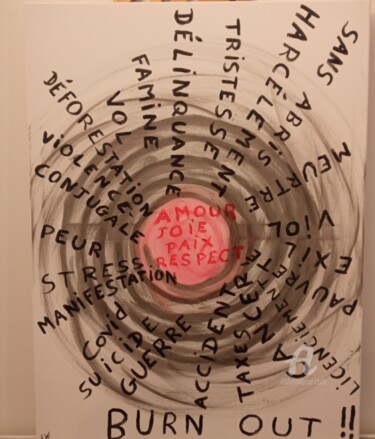 AMOUR
JOIE
PAIX
RESPECT
DÉLINQUANCE
TRISTESSE
HARCÈLEMENT
SANS ABRIS
MEURTRE
VIOL
EXIL
PAUVRETÉ
LICENCIEMENT
CANCER
TAXES
ACCIDENT
GUERRE
SUICIDE
Covid
MANIFESTATION
STRESS
PEUR
VIOLENCE
CONJUGALE
DÉFORESTATION
VOL
FAMINE
BURN OUT !!